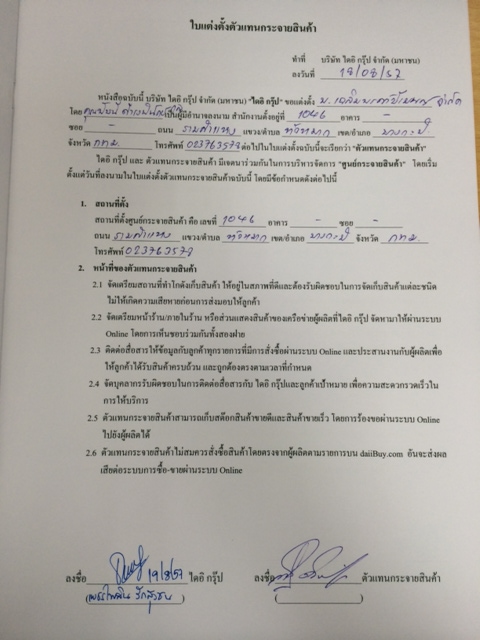 ใบแต่งตั้งตัวแทนกระจายสินค้า
ทำที่ บริษัท ไดอิ กรุ๊ป จำกัด (มหาชน)
ลงวันที่ 19/08/57
หนังสือฉบับนี้ บริษัท ไดอิ กรุ๊ป จำกัด (มหาชน) "ไดอิ กรุ๊ป" ขอแต่งตั้ง จำกัด
โดย เป็นผู้มีอำนาจลงนาม สำนักงานตั้งอยู่ที่ 1046 อาคาร -
ซอย - ถนน รามคำแหง แขวง/ตำบล หัวหมาก เขต/อำเภอ บางกะปิ
จังหวัด กทม. โทรศัพท์ 023763579 ต่อไปในใบแต่งตั้งฉบับนี้จะเรียกว่า "ตัวแทนกระจายสินค้า"
ไดอิ กรุ๊ป และ ตัวแทนกระจายสินค้า มีเจตนาร่วมกันในการบริหารจัดการ "ศูนย์กระจายสินค้า" โดยเริ่ม
ตั้งแต่วันที่ลงนามในใบแต่งตั้งตัวแทนกระจายสินค้าฉบับนี้ โดยมีข้อกำหนดดังต่อไปนี้
1. สถานที่ตั้ง
สถานที่ตั้งศูนย์กระจายสินค้า คือ เลขที่ 1046 อาคาร - ซอย -
ถนน รามคำแหง แขวง/ตำบล หัวหมาก เขต/อำเภอ บางกะปิ จังหวัด กทม.
โทรศัพท์ 023763579
2. หน้าที่ของตัวแทนกระจายสินค้า
2.1 จัดเตรียมสถานที่ทำโกดังเก็บสินค้า ให้อยู่ในสภาพที่ดีและต้องรับผิดชอบในการจัดเก็บสินค้าแต่ละชนิด
ไม่ให้เกิดความเสียหายก่อนการส่งมอบให้ลูกค้า
2.2 จัดเตรียมหน้าร้าน/ภายในร้าน หรือส่วนแสดงสินค้าของเครือข่ายผู้ผลิตที่ไดอิ กรุ๊ป จัดหามาให้ผ่านระบบ
Online โดยการเห็นชอบร่วมกันทั้งสองฝ่าย
2.3 ติดต่อสื่อสารให้ข้อมูลกับลูกค้าทุกรายการที่มีการสั่งซื้อผ่านระบบ Online และประสานงานกับผู้ผลิตเพื่อ
ให้ลูกค้าได้รับสินค้าครบถ้วน และถูกต้องตรงตามเวลาที่กำหนด
2.4 จัดบุคลากรรับผิดชอบในการติดต่อสื่อสารกับ ไดอิ กรุ๊ปและลูกค้าเป้าหมาย เพื่อความสะดวกรวดเร็วใน
การให้บริการ
2.5 ตัวแทนกระจายสินค้าสามารถเก็บสต๊อกสินค้าขายดีและสินค้าขายเร็ว โดยการร้องขอผ่านระบบ Online
ไปยังผู้ผลิตได้
2.6 ตัวแทนกระจายสินค้าไม่สมควรสั่งซื้อสินค้าโดยตรงจากผู้ผลิตตามรายการบน daiiBuy.com อันจะส่งผล
เสียต่อระบบการซื้อ-ขายผ่านระบบ Online
ลงชื่อ 19/8/57 ไดอิ กรุ๊ป ลงชื่อ ตัวแทนกระจายสินค้า